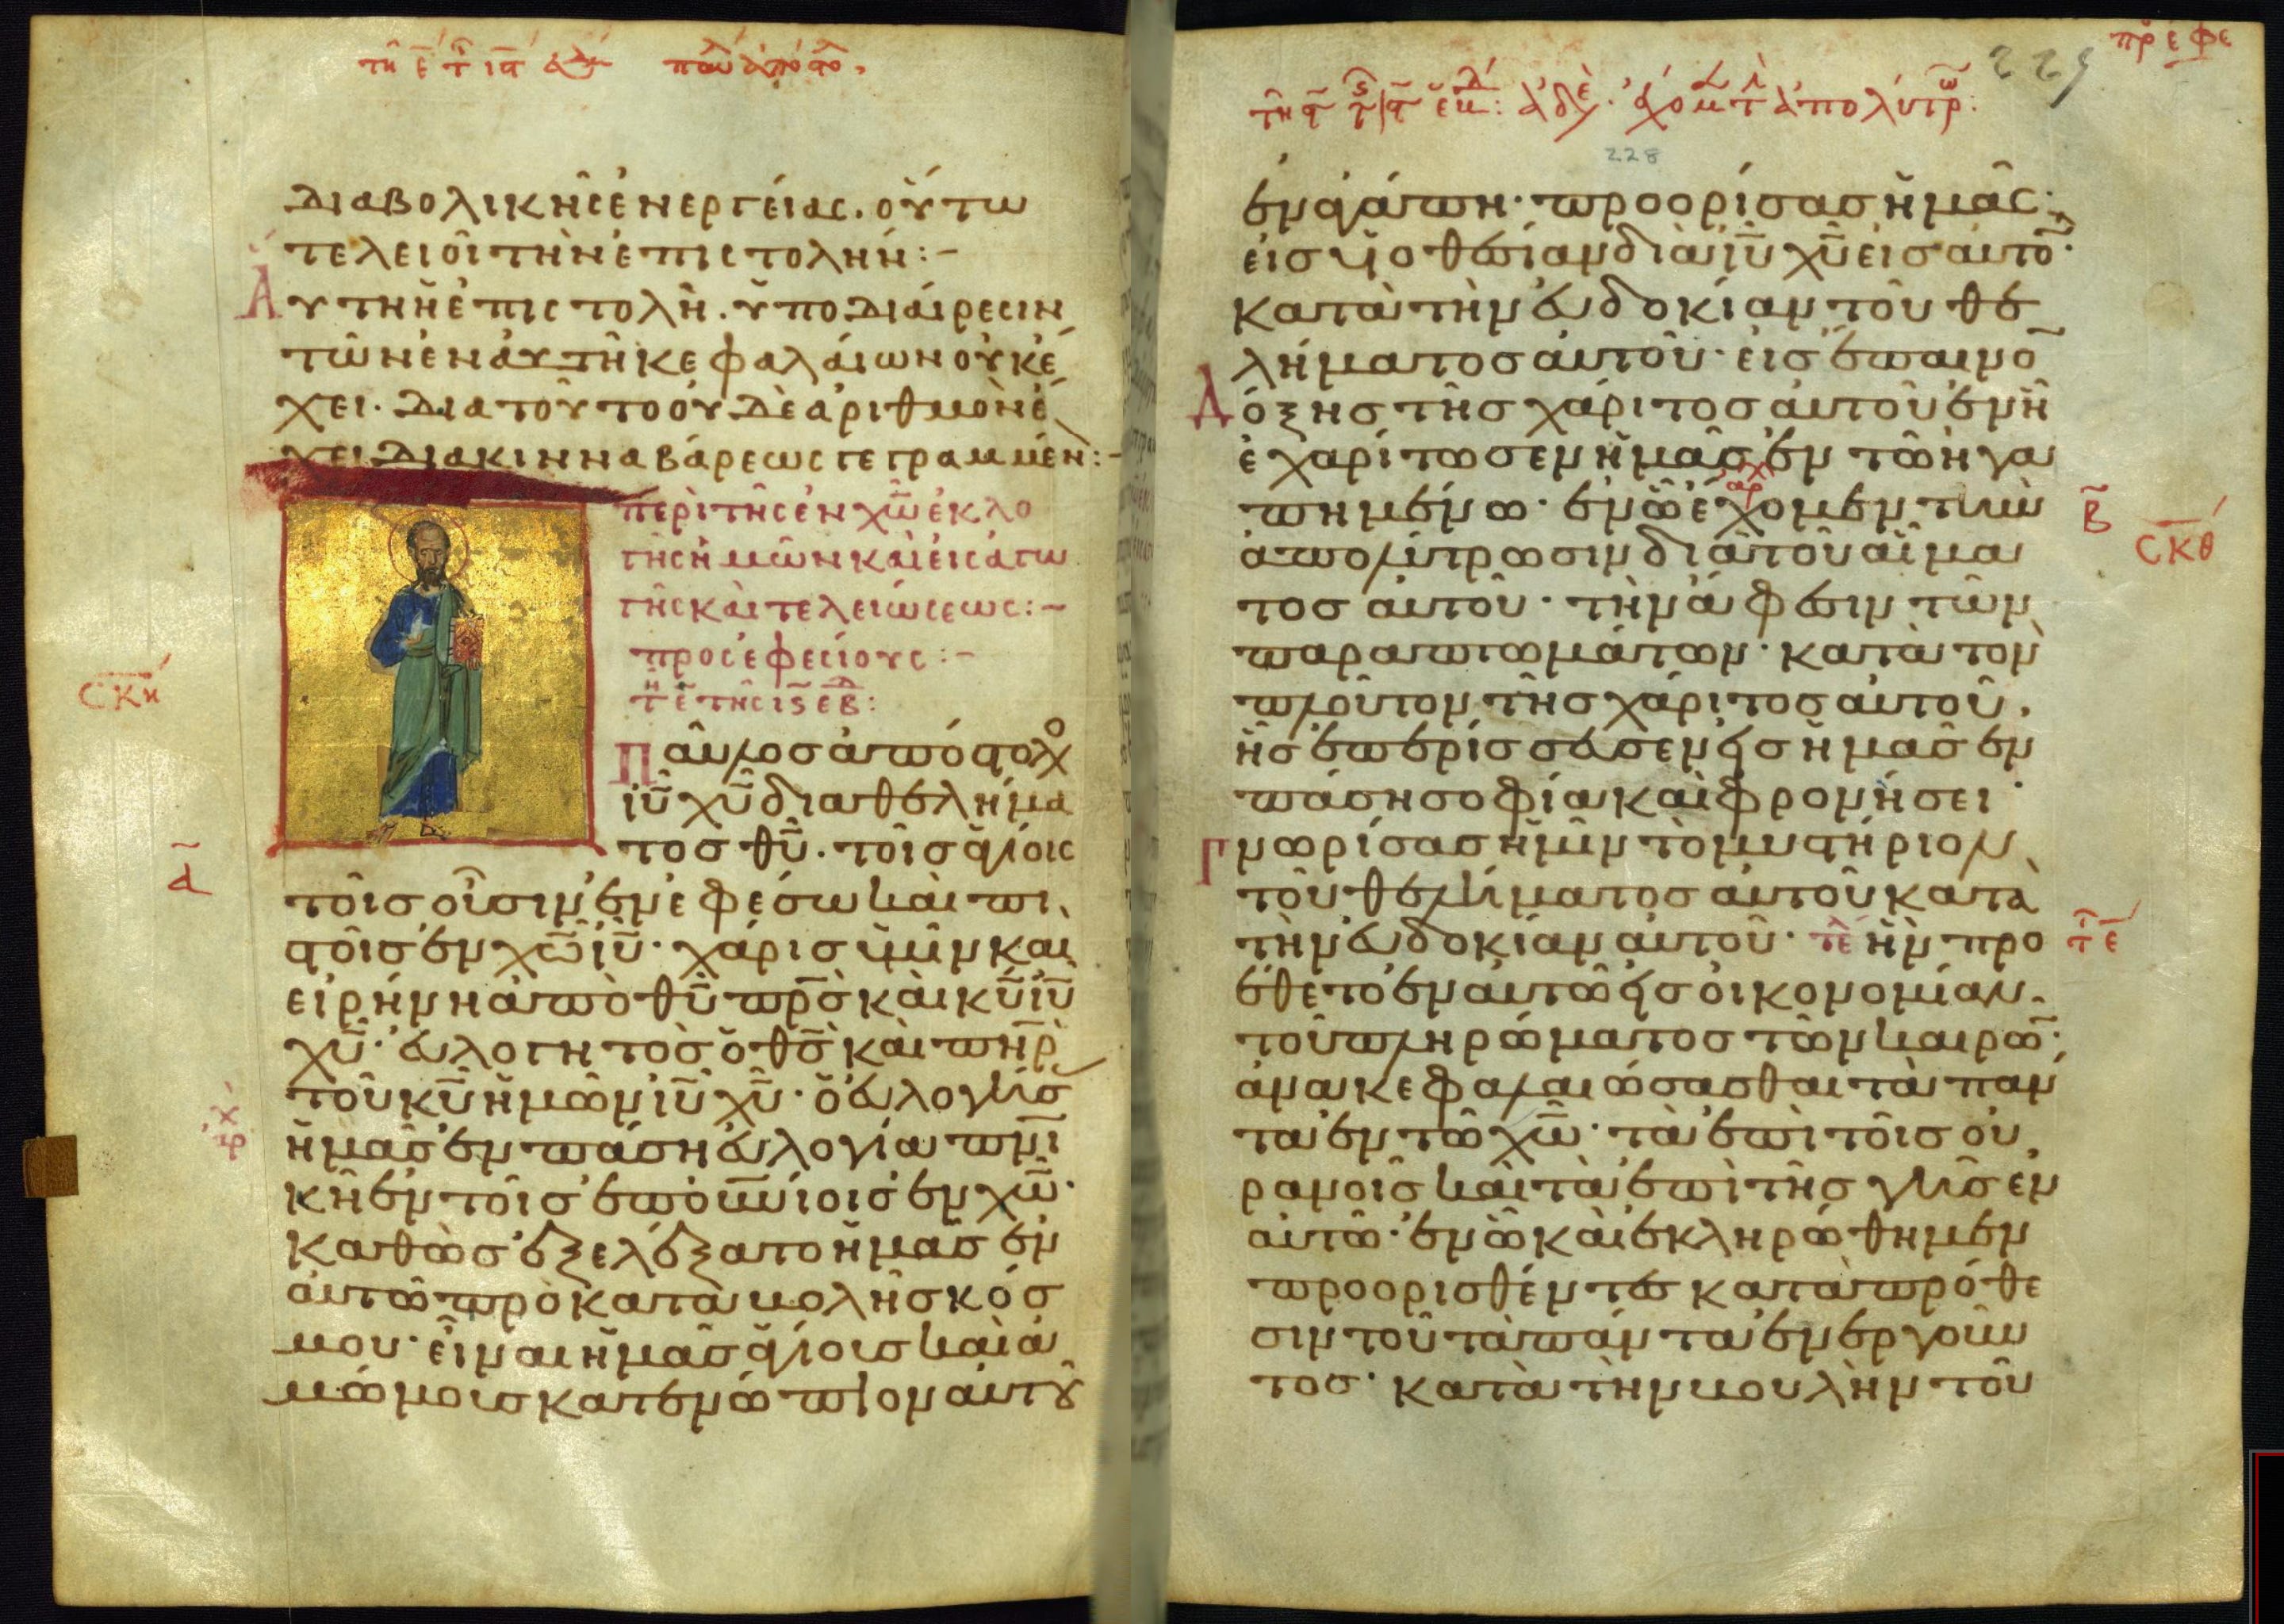 διαβολικῆς ἐνεργείας. οὕτω
τελειοῖ τὴν ἐπιστολήν:-
Αὕτη ἡ ἐπιστολὴ. ὑποδιαίρεσιν
τῶν ἐν αὐτῆ κεφαλαίων οὐκ ἔ
χει. διατοῦτο οὐδὲ ἀριθμὸν ἔ
χει διακινναβάρεως γεγραμμέν:-
περὶ τῆς ἐν χω ἐκλο
γῆς ἡμῶν καὶ εἰσαγω
γῆς καὶ τελειώσεως:-
προς ἐφεσίους:-
Παῦλος ἀπόστολο
ιυ χυ δια θελήμα
τος θυ. τοῖς ἁγίοις
τοῖς οὖσιν ἐν ἐφέσω και πι
στοῖς ἐν χω ιυ. χάρις ὑμῖν και
εἰρήνη ἀπὸ θυ πρς καὶ κυ ιυ
χυ. εὐλογητὸς ὁ θς καὶ πηρ
τοῦ κυ ἡμῶν ιυ χυ. ὁ εὐλογήσ
ἡμᾶς ἐν πάση εὐλογία πνι
κῆ ἐν τοῖς ἐπουνίοις ἐν χω.
καθὼς ἐξελέξατο ἡμᾶς ἐν
αὐτῶ πρὸ καταβολῆς κόσ
μου. εἶναι ἡμᾶς ἁγίοις καὶ ἀ
μώμοις κατενώπιον αὐτου
σκη
α
πρ εφε
229
228
ἐν ἀγάπη. προορίσας ἡμᾶς.
εἰς υἱοθεσίαν διὰ ιυ χυ εἰς αὐτο.
κατὰ τὴν εὐδοκίαν τοῦ θε
λήματος αὐτοῦ. εἰς ἔπαινο
Δόξης τῆς χάριτος αὐτοῦ ἐν ἧ
ἐχαρίτωσεν ἡμᾶς ἐν τῶ ἠγα
πημένω. ἐν ὧ ἔχομεν τὴν
ἀπολύτρωσιν διὰ τοῦ αἵμα
τος αὐτοῦ. τὴν ἄφεσιν τῶν
παραπτωμάτων. κατὰ τὸν
πλοῦτον τῆς χάριτος αὐτοῦ.
ἧς ἐπερίσσευσεν εἰς ἡμᾶς ἐν
πάση σοφία καὶ φρονήσει.
Γνωρίσας ἡμῖν τὸ μυστήριον
τοῦ θελήματος αὐτοῦ κατὰ
τὴν εὐδοκίαν αὐτοῦ. τε ἣν προ
έθετο ἐν αὐτῶ εἰς οἰκονομίαν
τοῦ πληρώματος τῶν καιρω.
ἀνακεφαλαιώσασθαι τὰ πάν
τα ἐν τῶ χω. τὰ ἐπὶ τοῖς οὐ
ρανοῖς καὶ τὰ ἐπὶ τῆς γῆς ἐν
αὐτῶ. ἐν ὧ καὶ ἐκληρώθημεν
προορισθέντες κατὰ πρόθε
σιν τοῦ τὰ πάντα ἐνεργοῦν
τος. κατὰ τὴν βουλὴν τοῦ
β
σκθ